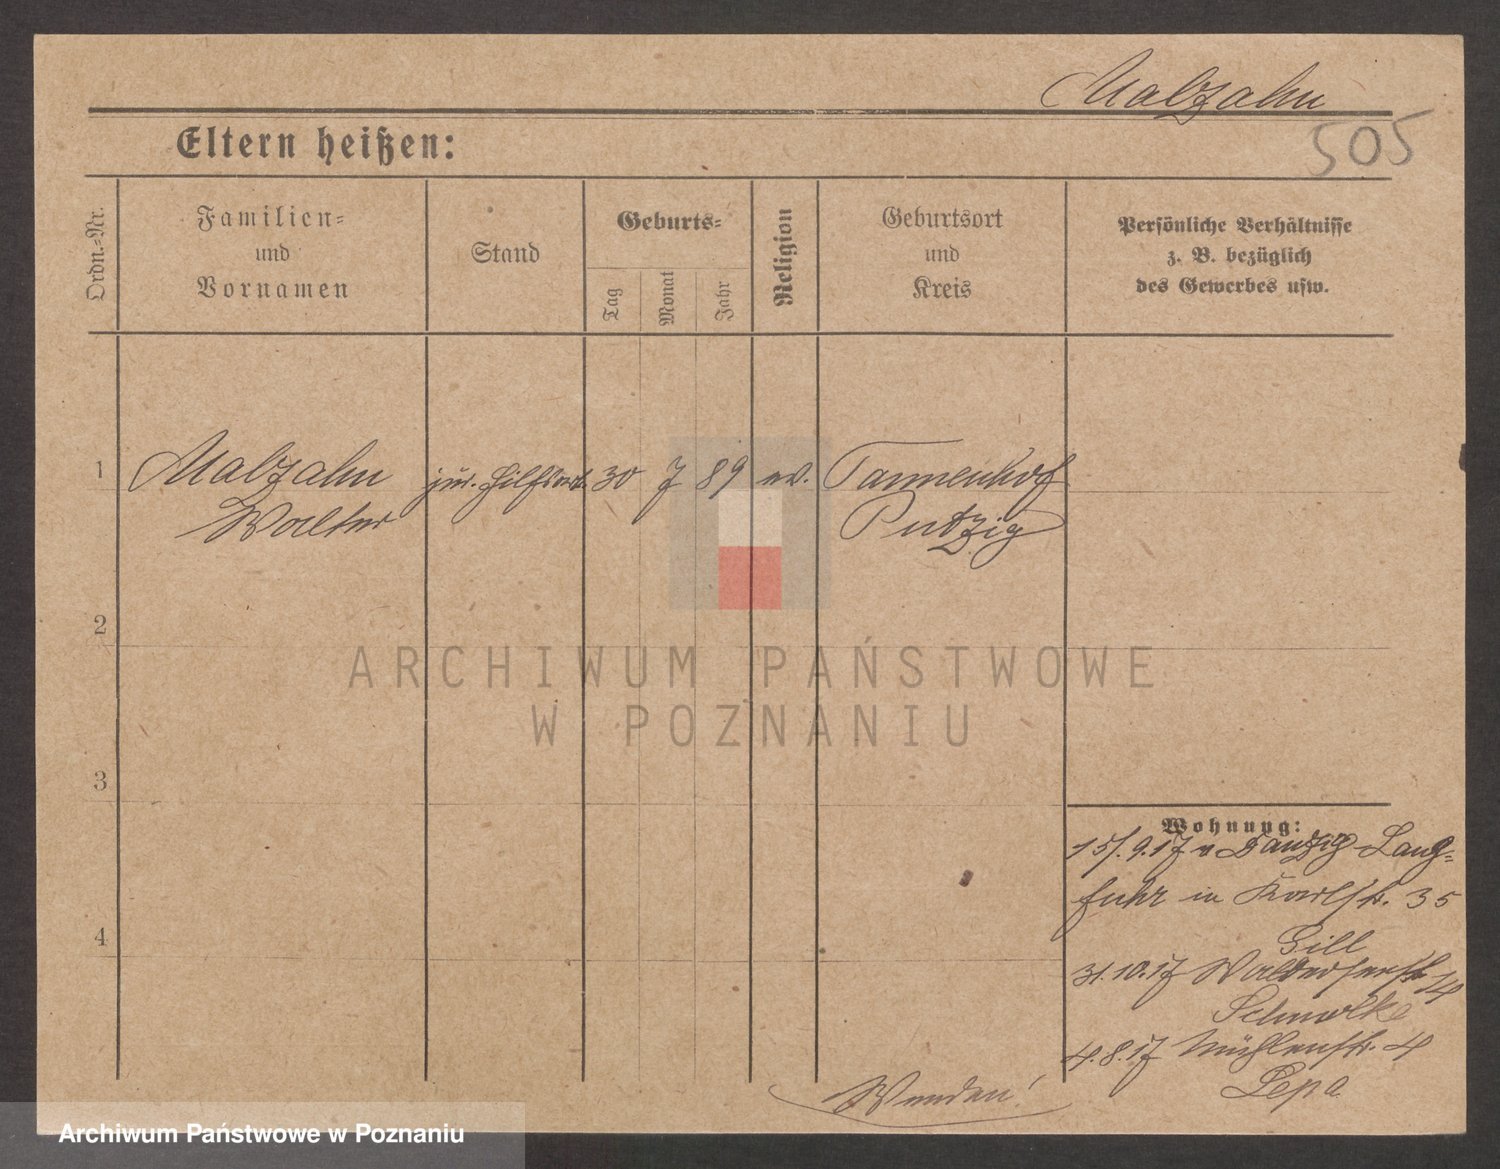 Malzahn
505
Eltern heißen:
Ordn.-Nr.
Familien-
und
Vornamen
Stand
Geburts-
Tag
Monat
Jahr
Religion
Geburtsort
und
Kreis
Persönliche Verhältnisse
z. B. bezüglich
des Gewerbes usw.
1 Malzahn jur. Hilfsarb. 30 7 89 ev. Tannenhof
Walter Putzig
2
3
4
Wohnung:
15/.9.17 v Danzig-Lang=
fuhr in Karlstr. 35
Gill
31.10.17 Walderseestr 14
Schmolke
4.8.17 Mühlenstr. 4
Lepa
Wenden!
ARCHIWUM PAŃSTWOWE
W POZNANIU
Archiwum Państwowe w Poznaniu